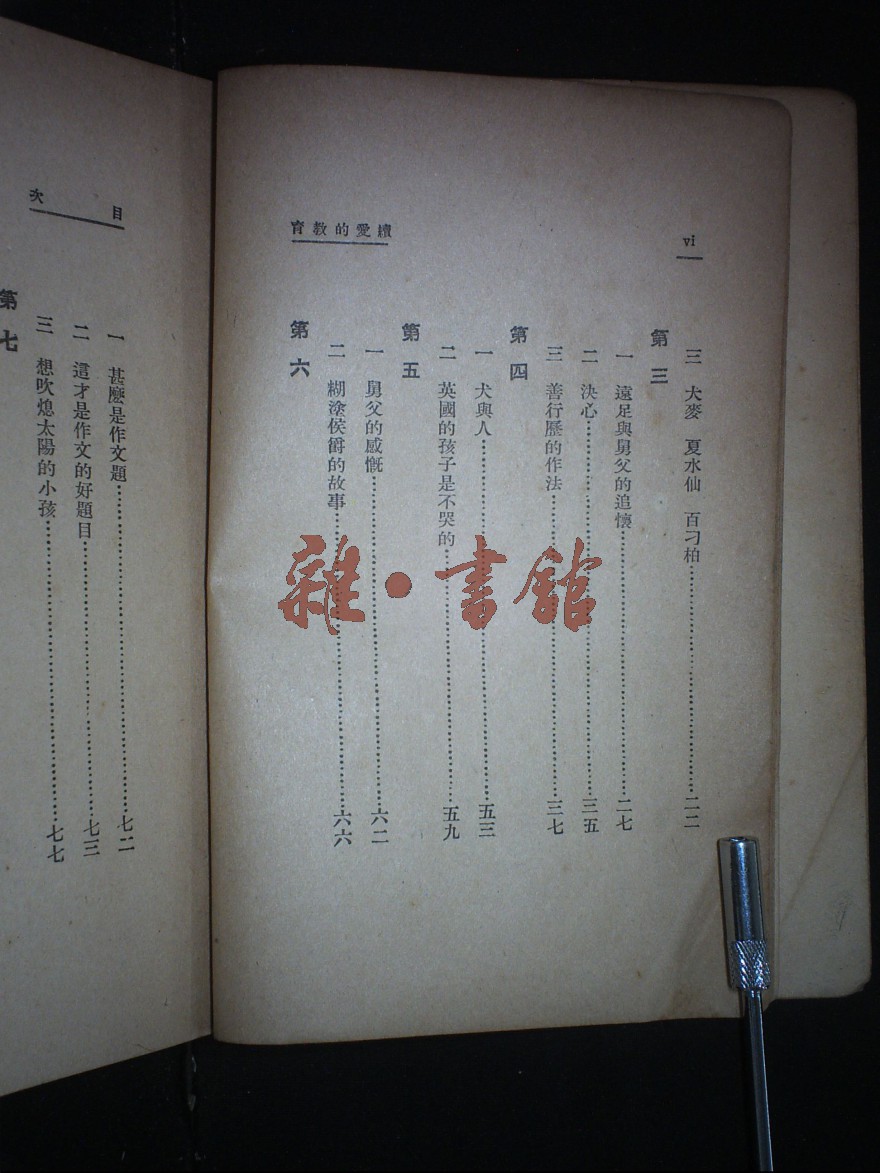 vi
育教的愛續
三 大麥 夏水仙 百刁柏……二二
第三
一 遠足與舅父的追懷……二七
二 決心……三五
三 善行歷的作法……三七
第四
一 犬與人……五三
二 英國的孩子是不哭的……五九
第五
一 舅父的感慨……六二
二 糊塗侯爵的故事……六六
第六
次目
一 甚麽是作文題……七二
二 這才是作文的好題目……七三
三 想吹熄太陽的小孩……七七
第七
雜·書館